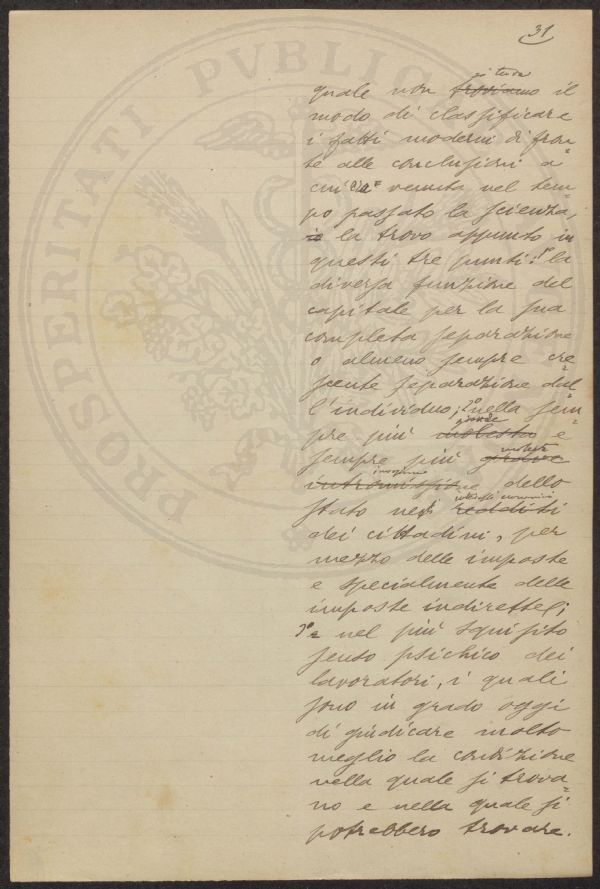 31
PROSPERITATI PVBLIC
si trova
quale non troviamo il
modo di classificare
i fatti moderni di fron=
te alle conclusioni a
cui era venuta nel tem=
po passato la scienza,
io la trovo appunto in
questi tre punti: 1º la
diversa funzione del
capitale per la sua
completa separazione
o almeno sempre cre=
scente separazione dal
l'individuo; 2º nella sem=
grande
pre più molesta e
molesta
sempre più grave
intromissione dello
interessi economici
stato nei redditi
dei cittadini, per
mezzo delle imposte
e specialmente delle
imposte indirette;
3º e nel più squisito
senso psichico dei
lavoratori, i quali
sono in grado oggi
di giudicare molto
meglio la condizione
nella quale si trova=
no e nella quale si
potrebbero trovare.